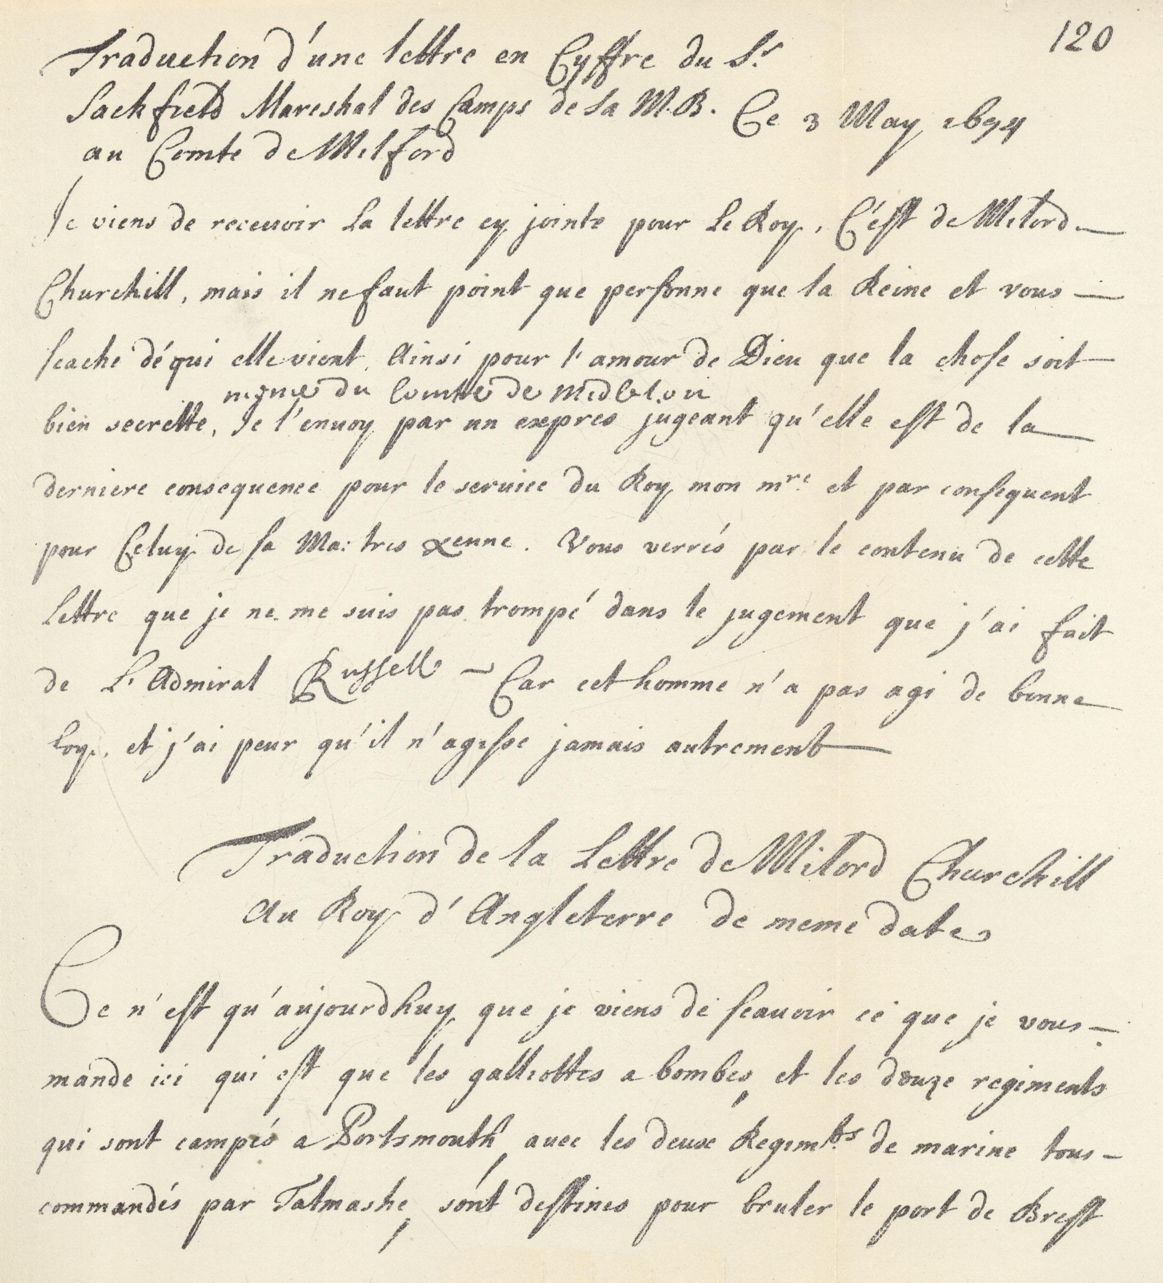 120
Traduction d'une lettre en Cyffre du Sr
Sackfield Mareshal des Camps de sa M.B. Ce 3 May 1694
au Comte de Milford
Je viens de recevoir la lettre cy jointe pour le Roy, C'est de Milord
Churchill, mais il ne faut point que personne que la Reine et vous
scache de qui elle vient. Ainsi pour l'amour de Dieu que la chose soit
mesme du Comte de Midleton
bien secrette, Je l'envoy par un expres jugeant qu'elle est de la
derniere consequence pour le service du Roy mon mre et par consequent
pour Celuy de sa Ma: tres xenne. Vous verrés par le contenu de cette
lettre que je ne me suis pas trompé dans le jugement que j'ai fait
de L'Admiral Russell – Car cet homme n'a pas agi de bonne
foy, et j'ai peur qu'il n'agisse jamais autrement
Traduction de la Lettre de Milord Churchill
Au Roy d'Angleterre de meme date
Ce n'est qu'aujourdhuy que je viens de scauoir ce que je vous
mande ici qui est que les galliottes a bombes, et les douze regiments
qui sont campés a Portsmouth, avec les deux Regimts de marine tous
commandés par Talmashe, sont destines pour bruler le port de Brest